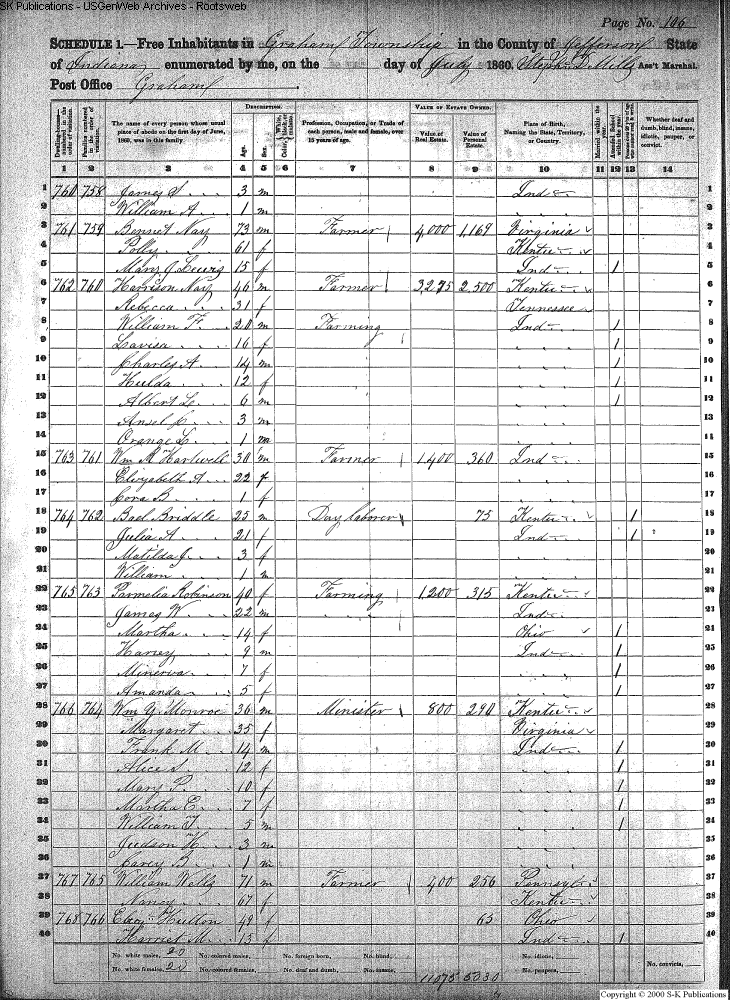 SK Publications - USGenWeb Archives - Rootsweb
Page No. 106
SCHEDULE 1.—Free Inhabitants in Graham Township in the County of Jefferson State
of Indiana enumerated by me, on the day of July 1860. Ass't Marshal.
Post Office Graham
DESCRIPTION. VALUE OF ESTATE OWNED.
The name of every person whose usual place of abode on the first day of June, 1860, was in this family. Age. Sex. Profession, Occupation, or Trade of each person, male and female, over 15 years of age. Value of Real Estate. Value of Personal Estate. Place of Birth, Naming the State, Territory, or Country. Whether deaf and dumb, blind, insane, idiotic, pauper, or convict.
1 2 3 4 5 6 7 8 9 10 11 12 13 14
1 760 758 James S. 3 m Ind 1
2 William A 1 m 2
3 761 759 Benset Nay 73 m Farmer 4,000 1,169 Virginia 3
4 Polly 61 f Kentu 4
5 Mary J Lewis 15 f Ind 1 5
6 762 760 Harrison Nay 46 m Farmer 3,275 2,500 Kentu 6
7 Rebecca 31 f Tennessee 7
8 William F. 20 m Farming Ind 1 8
9 Lavisa 16 f 1 9
10 Charles A 14 m 1 10
11 Hulda 12 f 1 11
12 Albert L. 6 m 1 12
13 Ansel 3 m 13
14 Orange L. 1 m 14
15 763 761 Wm Hartwell 30 m Farmer 1,400 360 Ind 15
16 Elizabeth A 22 f 16
17 Cora B 1 f 17
18 764 762 Bael Briddle 25 m Day laborer 75 Kentu 1 18
19 Julia A 21 f Ind 1 19
20 Matilda J. 3 f 20
21 William 1 m 21
22 765 763 Parmelia Robinson 40 f Farming 1,200 315 Kentu 22
23 James W. 22 m Ind
24 Martha 14 f Ohio 1
25 Harvey 9 m Ind 1
26 Minerva 7 f 1
27 Amanda 5 f 1
28 766 764 Wm Y. Monroe 36 m Minister 800 290 Kentu
29 Margaret 35 f Virginia
Frank M. 14 m Ind 1
31 Alice S. 12 f 1
Mary P. 10 f 1
Martha E. 7 f 1
William T. 5 m 1
Judson H 3 m
Carey B 1 m
767 765 William Wells 71 m Farmer 400 256 Pennsyl
Nancy 67 f Kentu
768 766 Hutton 49 f 65 Ohio
Harriet M. 13 f Ind 1 40
No. white males, 20 No. colored males, No. foreign born, No. blind, No. idiotic, No. convicts,
No. white females, 20 No. colored females, No. deaf and dumb, No. insane, 11075 5030 No. paupers,
Copyright © 2000 S-K Publications